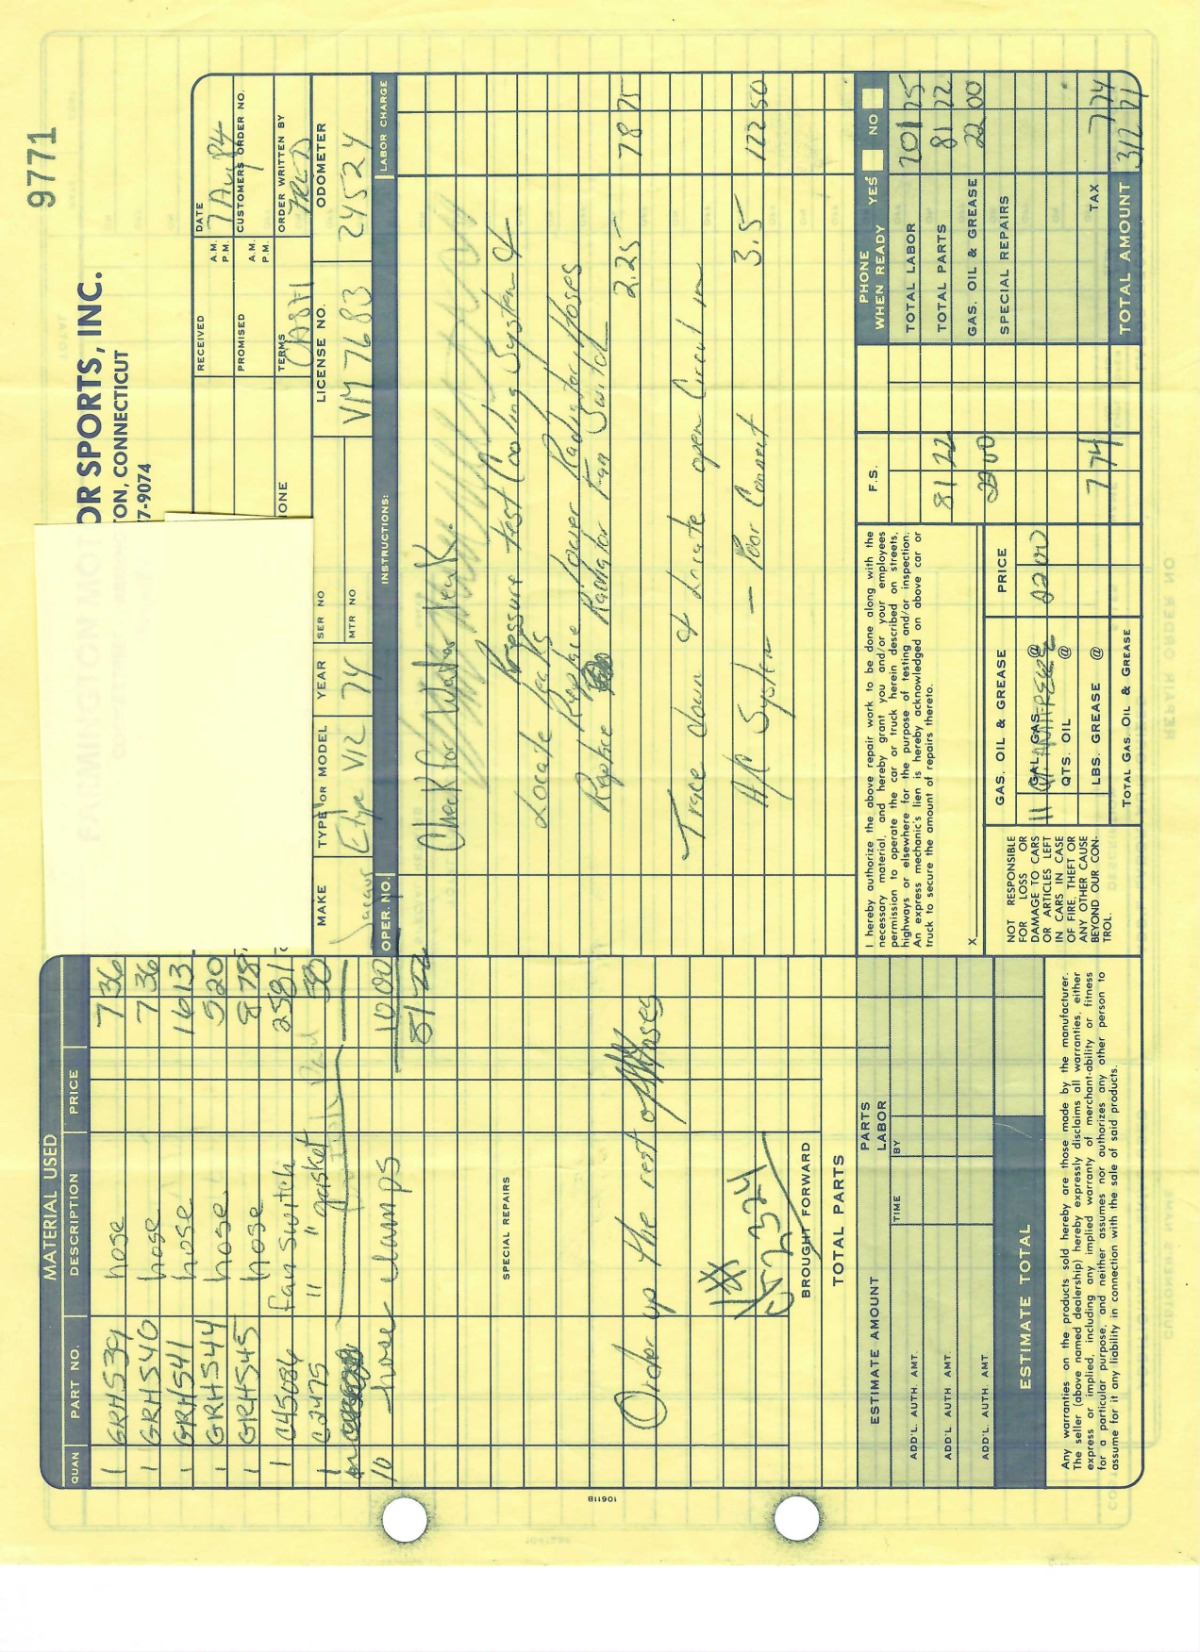 9771
OR SPORTS, INC.
TON, CONNECTICUT
7-9074
RECEIVED A.M. P.M. DATE 7 Aug 84
PROMISED A.M. P.M. CUSTOMERS ORDER NO.
TERMS CASH ORDER WRITTEN BY FRED
ONE
MAKE TYPE OR MODEL YEAR SER NO LICENSE NO. ODOMETER
Jaguar Etype V12 74 MTR NO VM 7683 24524
OPER. NO. INSTRUCTIONS: LABOR CHARGE
Check for Water leaks.
Pressure test Cooling System &
Locate leaks
Replace lower Radiator Hoses
Replace Radiator Fan Switch 2.25 78 75
Trace down & Locate open Circuit in
A/C System — Poor Connect 3.5 122 50
MATERIAL USED
QUAN PART NO. DESCRIPTION PRICE
1 GRH539 hose 7 36
1 GRH540 hose 7 36
1 GRH541 hose 16 13
1 GRH544 hose 5 20
1 GRH545 hose 8 78
1 C45086 fan switch 25 81
1 C2475 " " gasket 58
10 hose clamps 10 00
81 22
SPECIAL REPAIRS
Order up the rest of hoses
BROUGHT FORWARD
TOTAL PARTS
ESTIMATE AMOUNT PARTS LABOR
ADD'L. AUTH. AMT. TIME BY
ADD'L. AUTH. AMT.
ADD'L. AUTH. AMT.
ESTIMATE TOTAL
Any warranties on the products sold hereby are those made by the manufacturer.
The seller (above named dealership) hereby expressly disclaims all warranties, either
express or implied, including any implied warranty of merchant-ability or fitness
for a particular purpose, and neither assumes nor authorizes any other person to
assume for it any liability in connection with the sale of said products.
I hereby authorize the above repair work to be done along with the
necessary material, and hereby grant you and/or your employees
permission to operate the car or truck herein described on streets,
highways or elsewhere for the purpose of testing and/or inspection.
An express mechanic's lien is hereby acknowledged on above car or
truck to secure the amount of repairs thereto.
X
NOT RESPONSIBLE
FOR LOSS OR
DAMAGE TO CARS
OR ARTICLES LEFT
IN CARS IN CASE
OF FIRE, THEFT OR
ANY OTHER CAUSE
BEYOND OUR CON-
TROL.
GAS, OIL & GREASE PRICE
GAL. GAS @ 22 00
QTS. OIL @
LBS. GREASE @
TOTAL GAS OIL & GREASE
F.S.
81 22
22 00
7 74
PHONE WHEN READY YES NO
TOTAL LABOR 201 25
TOTAL PARTS 81 22
GAS, OIL & GREASE 22 00
SPECIAL REPAIRS
TAX 7 74
TOTAL AMOUNT 312 21
106118